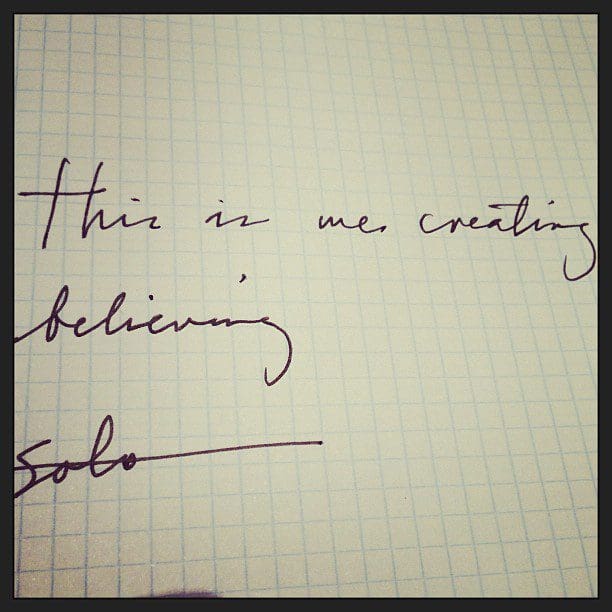 this is me. creating
believing
solo